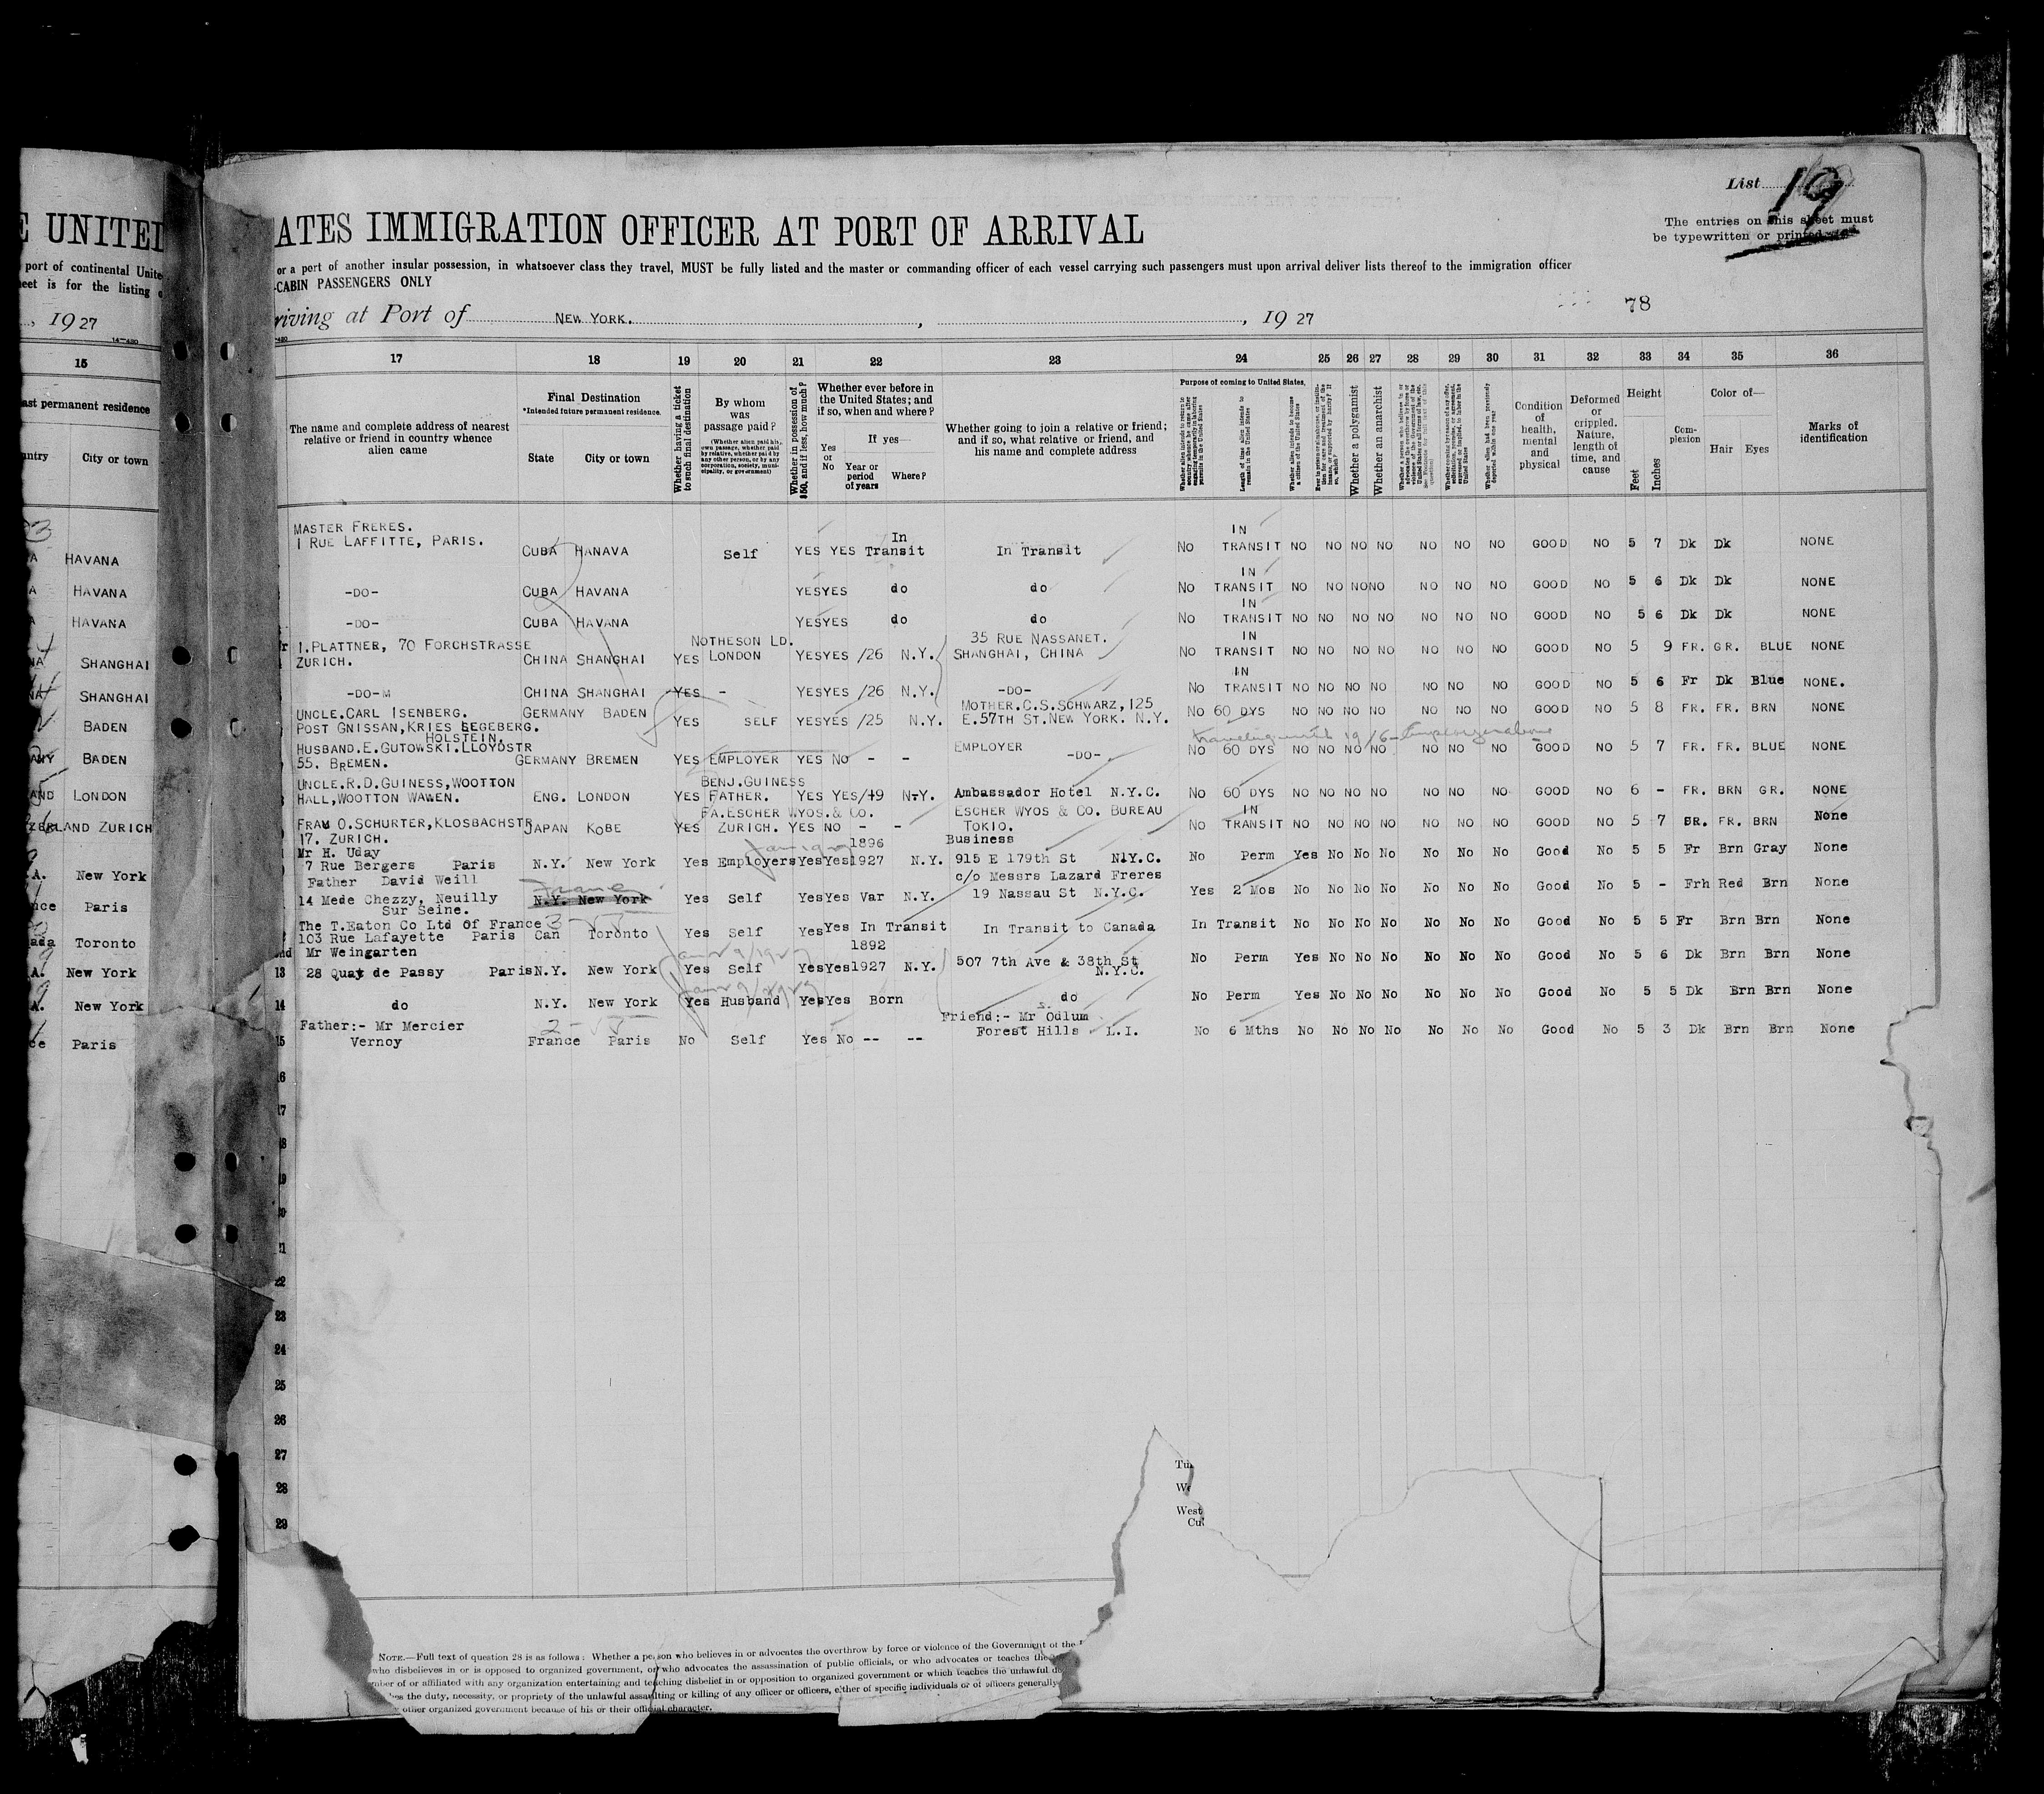 List 19
The entries on this sheet must
be typewritten or printed
E UNITED
ATES IMMIGRATION OFFICER AT PORT OF ARRIVAL
port of continental Unite
or a port of another insular possession, in whatsoever class they travel, MUST be fully listed and the master or commanding officer of each vessel carrying such passengers must upon arrival deliver lists thereof to the immigration officer
eet is for the listing o
-CABIN PASSENGERS ONLY
, 1927
riving at Port of NEW YORK. , , 1927
78
15 17 18 19 20 21 22 23 24 25 26 27 28 29 30 31 32 33 34 35 36
ast permanent residence
untry City or town
The name and complete address of nearest
relative or friend in country whence
alien came
Final Destination
*Intended future permanent residence.
State City or town
Whether having a ticket
to such final destination
By whom
was
passage paid?
(Whether alien paid his
own passage, whether paid
by relative, whether paid by
any other person, or by any
corporation, society, muni-
cipality, or government)
Whether in possession of
$50, and if less, how much?
Whether ever before in
the United States; and
if so, when and where?
Yes
or
No
If yes—
Year or
period
of years
Where?
Whether going to join a relative or friend;
and if so, what relative or friend, and
his name and complete address
Purpose of coming to United States.
Length of time alien intends to
remain in the United States
Whether alien intends to become
a citizen of the United States
Whether a polygamist
Whether an anarchist
Whether alien had been previously
deported within one year
Condition
of
health,
mental
and
physical
Deformed
or
crippled.
Nature,
length of
time, and
cause
Height
Feet
Inches
Com-
plexion
Color of—
Hair Eyes
Marks of
identification
MASTER FRERES.
1 RUE LAFFITTE, PARIS.
HAVANA CUBA HANAVA Self YES YES In Transit In Transit No IN TRANSIT NO NO NO NO NO NO NO GOOD NO 5 7 Dk Dk NONE
HAVANA -DO- CUBA HAVANA YES YES do do No IN TRANSIT NO NO NO NO NO NO NO GOOD NO 5 6 Dk Dk NONE
HAVANA -DO- CUBA HAVANA YES YES do do No IN TRANSIT NO NO NO NO NO NO NO GOOD NO 5 6 Dk Dk NONE
I.PLATTNER, 70 FORCHSTRASSE NOTHESON LD. 35 RUE NASSANET. IN
SHANGHAI ZURICH. CHINA SHANGHAI YES LONDON YES YES /26 N.Y. SHANGHAI, CHINA No TRANSIT NO NO NO NO NO NO NO GOOD NO 5 9 FR. GR. BLUE NONE
SHANGHAI -DO-M CHINA SHANGHAI YES - YES YES /26 N.Y. -DO- No IN TRANSIT NO NO NO NO NO NO NO GOOD NO 5 6 Fr Dk Blue NONE.
UNCLE.CARL ISENBERG. GERMANY BADEN MOTHER.C.S.SCHWARZ,125
BADEN POST GNISSAN,KRIES SEGEBERG. YES SELF YES YES /25 N.Y. E.57TH ST.NEW YORK. N.Y. No 60 DYS NO NO NO NO NO NO NO GOOD NO 5 8 FR. FR. BRN NONE
HOLSTEIN.
HUSBAND.E.GUTOWSKI.LLOYDSTR EMPLOYER
BADEN 55. BREMEN. GERMANY BREMEN YES EMPLOYER YES NO - - -DO- No 60 DYS NO NO NO NO NO NO NO GOOD NO 5 7 FR. FR. BLUE NONE
UNCLE.R.D.GUINESS,WOOTTON BENJ.GUINESS
AND LONDON HALL,WOOTTON WAWEN. ENG. LONDON YES FATHER. YES YES/19 N.Y. Ambassador Hotel N.Y.C. No 60 DYS NO NO NO NO NO NO NO GOOD NO 6 - FR. BRN GR. NONE
FA.ESCHER WYOS.& CO. ESCHER WYOS & CO. BUREAU IN
ZERLAND ZURICH FRAU O.SCHURTER,KLOSBACHSTR JAPAN KOBE YES ZURICH. YES NO - - TOKIO. No TRANSIT NO NO NO NO NO NO NO GOOD NO 5 7 BR. FR. BRN None
17. ZURICH.
Mr H. Uday 1896 Business
A. New York 7 Rue Bergers Paris N.Y. New York Yes Employers Yes Yes 1927 N.Y. 915 E 179th St N.Y.C. No Perm Yes No No No No No No Good No 5 5 Fr Brn Gray None
Father David Weill France c/o Messrs Lazard Freres
nce Paris 14 Mede Chezzy, Neuilly N.Y. New York Yes Self Yes Yes Var N.Y. 19 Nassau St N.Y.C. Yes 2 Mos No No No No No No No Good No 5 - Frh Red Brn None
Sur Seine.
The T.Eaton Co Ltd Of France
ada Toronto 103 Rue Lafayette Paris Can Toronto Yes Self Yes Yes In Transit In Transit to Canada In Transit No No No No No No No Good No 5 5 Fr Brn Brn None
Mr Weingarten 1892
A. New York 13 28 Quay de Passy Paris N.Y. New York Yes Self Yes Yes 1927 N.Y. 507 7th Ave & 38th St No Perm Yes No No No No No No Good No 5 6 Dk Brn Brn None
N.Y.C.
A. New York 14 do N.Y. New York Yes Husband Yes Yes Born do No Perm Yes No No No No No No Good No 5 5 Dk Brn Brn None
Father:- Mr Mercier Friend:- Mr Odlum
ce Paris 15 Vernoy France Paris No Self Yes No -- -- Forest Hills L.I. No 6 Mths No No No No No No No Good No 5 3 Dk Brn Brn None
16
17
18
19
20
21
22
23
24
25
26
27
28
29
Tu
We
West
Cu
NOTE.—Full text of question 28 is as follows: Whether a person who believes in or advocates the overthrow by force or violence of the Government of the
who disbelieves in or is opposed to organized government, or who advocates the assassination of public officials, or who advocates or teaches the
mber of or affiliated with any organization entertaining and teaching disbelief in or opposition to organized government or which teaches the unlawful
the duty, necessity, or propriety of the unlawful assaulting or killing of any officer or officers, either of specific individuals or of officers generally
other organized government because of his or their official character.